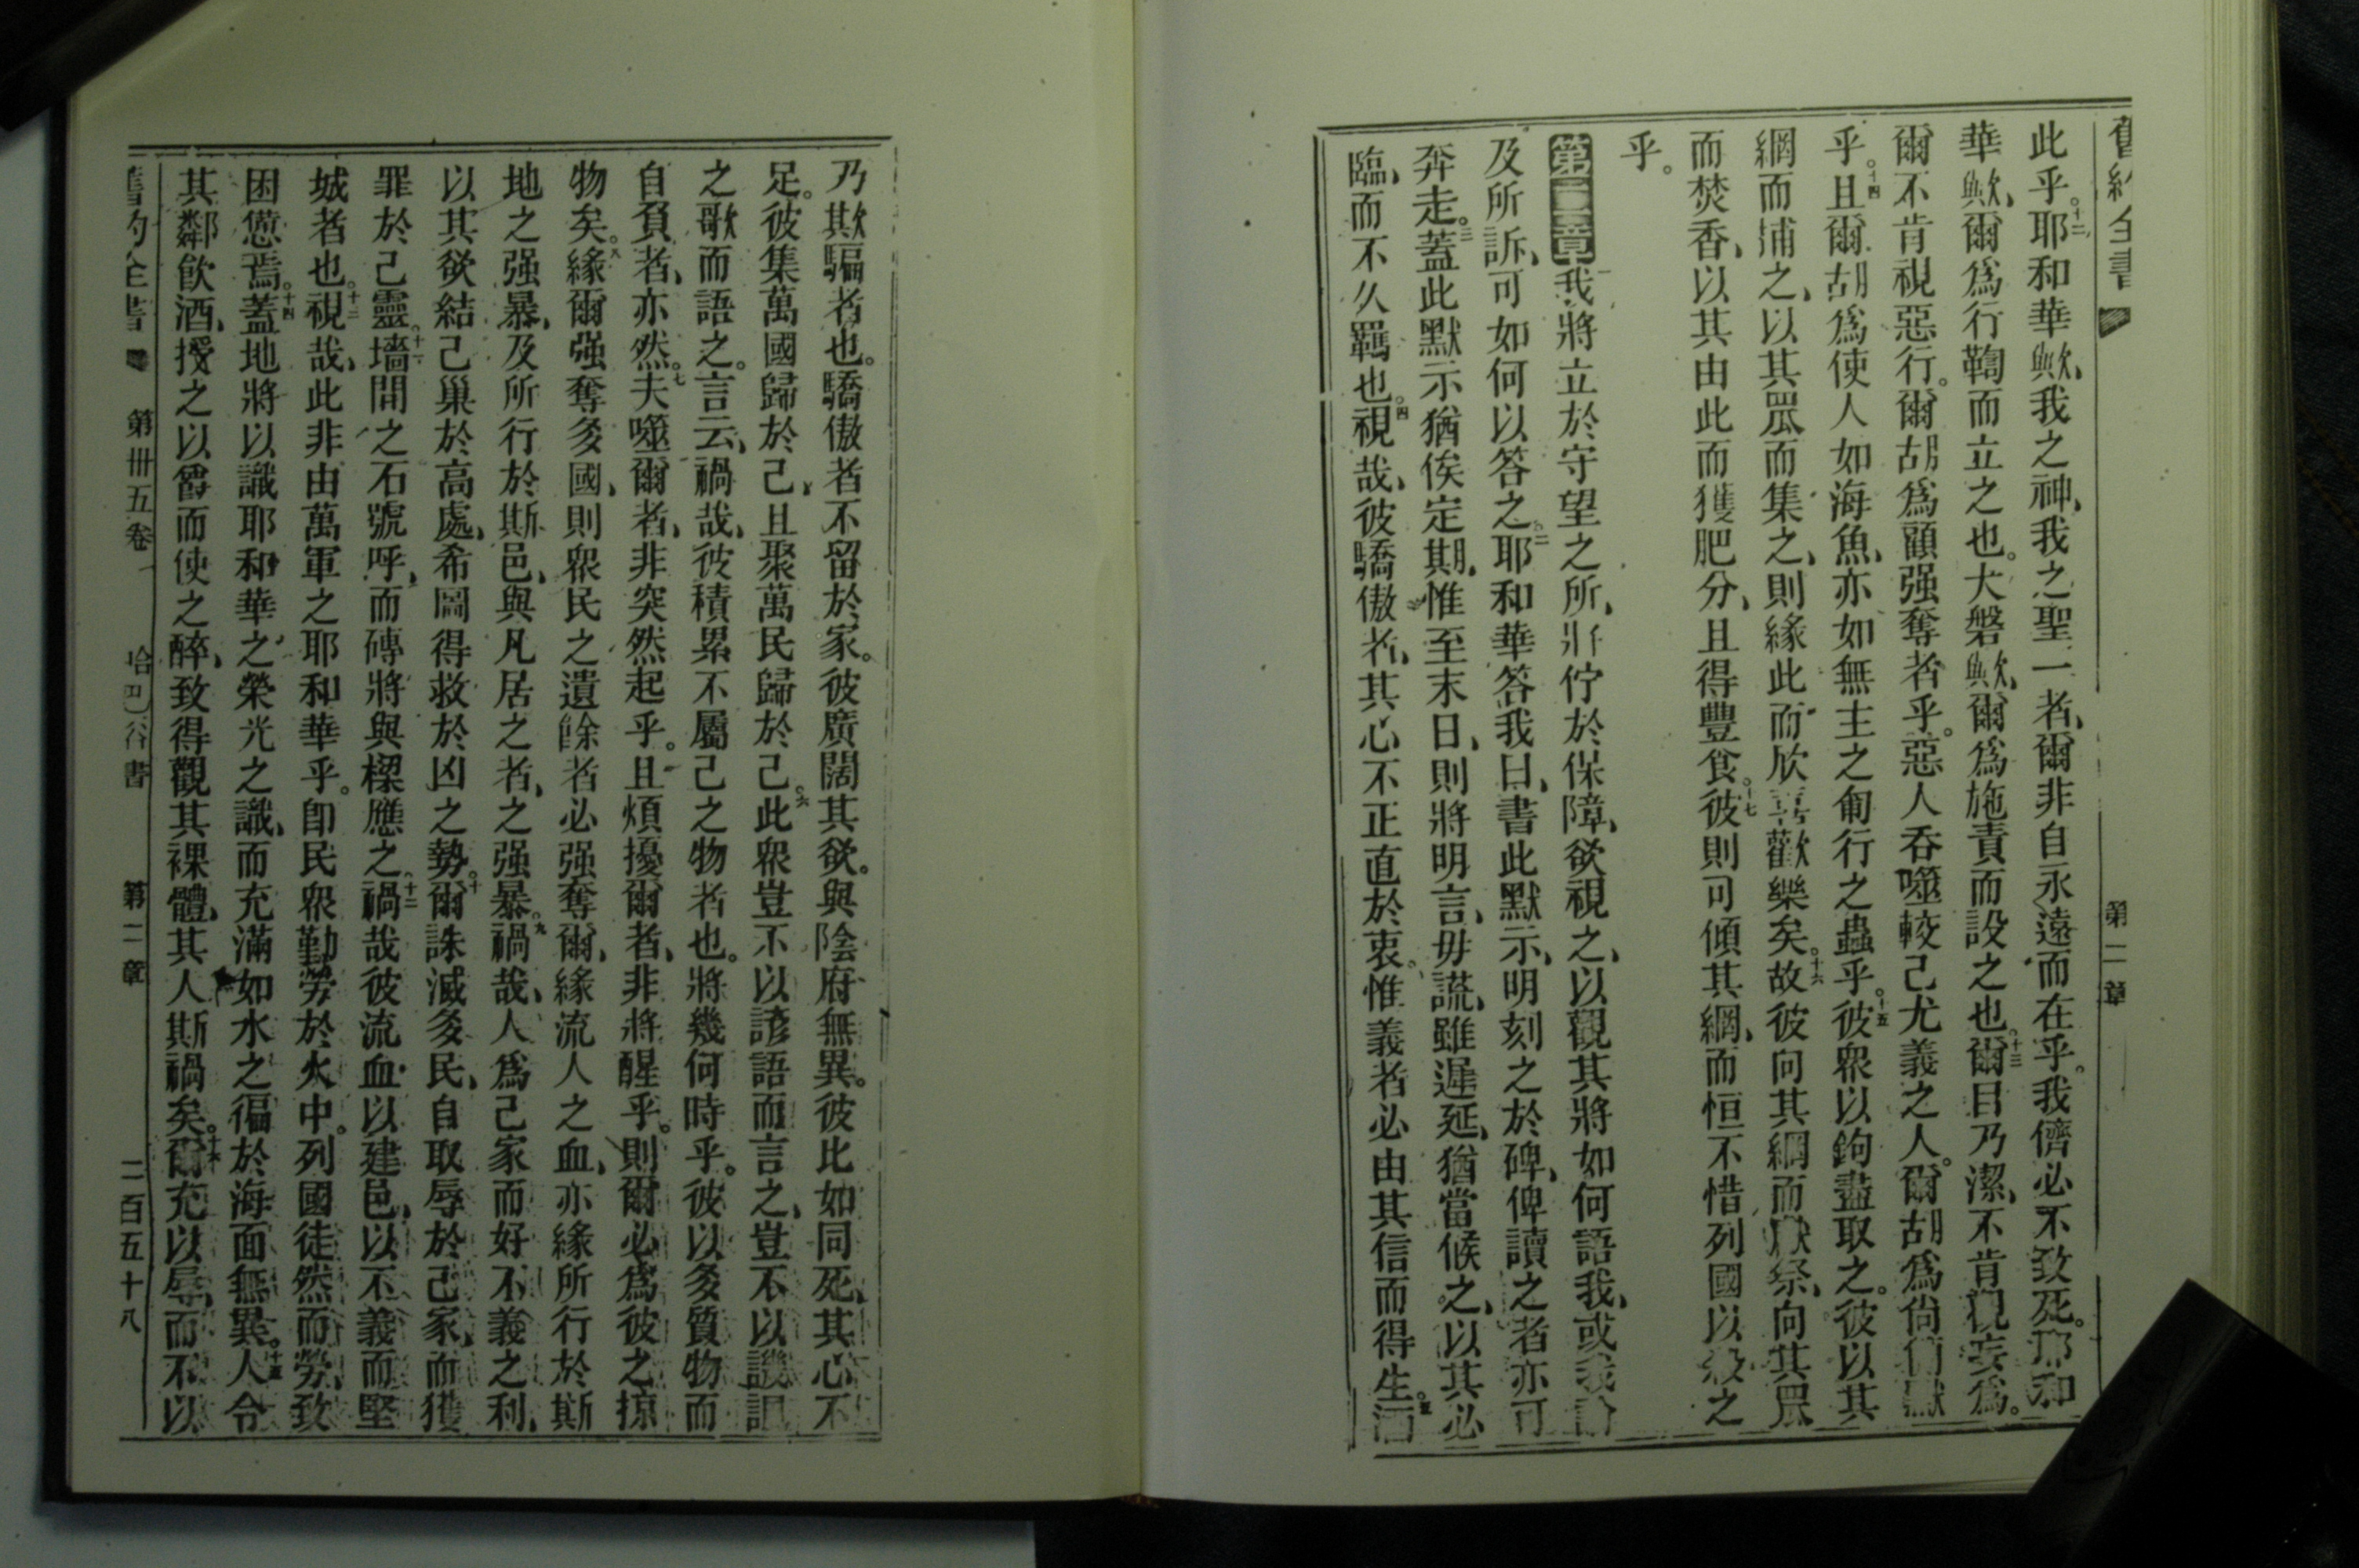 舊約全書 第二章
此乎。十二耶和華歟、我之神、我之聖一者、爾非自永遠而在乎。我儕必不致死。耶和
華歟、爾爲行鞫而立之也。大磐歟、爾爲施責而設之也。十三爾目乃潔、不肯視妄爲。
爾不肯視惡行。爾胡爲顧强奪者乎。惡人吞噬較己尤義之人。爾胡爲尙緘默
乎。十四且爾胡爲使人如海魚、亦如無主之匍行之蟲乎。十五彼衆以鉤盡取之。彼以其
網而捕之、以其罛而集之、則緣此而欣喜歡樂矣。十六故彼向其網而獻祭、向其罛
而焚香、以其由此而獲肥分、且得豐食。十七彼則可傾其網、而恒不惜列國以殺之
乎。
第二章 我將立於守望之所、將佇於保障、欲視之、以觀其將如何語我、或我論
及所訴、可如何以答之。二耶和華答我曰、書此默示、明刻之於碑、俾讀之者亦可
奔走。三蓋此默示猶俟定期、惟至末日、則將明言、毋謊、雖遲延、猶當候之、以其必
臨、而不久羈也。四視哉、彼驕傲者、其心不正直於衷、惟義者必由其信而得生。五酒
乃欺騙者也。驕傲者不留於家。彼廣闊其欲。與陰府無異。彼比如同死、其心不
足。彼集萬國歸於己、且聚萬民歸於己。六此衆豈不以諺語而言之、豈不以譏詛
之歌而語之。言云、禍哉、彼積累不屬己之物者也。將幾何時乎。彼以多質物而
自負者、亦然。七夫噬爾者、非突然起乎。且煩擾爾者、非將醒乎。則爾必爲彼之掠
物矣。八緣爾强奪多國、則衆民之遺餘者必强奪爾、緣流人之血、亦緣所行於斯
地之强暴、及所行於斯邑、與凡居之者、之强暴。九禍哉、人爲己家而好不義之利、
以其欲結己巢於高處、希圖得救於凶之勢。十爾誅滅多民、自取辱於己家、而獲
罪於己靈。十一墻間之石號呼、而磚將與樑應之。十二禍哉彼流血以建邑、以不義而堅
城者也。十三視哉、此非由萬軍之耶和華乎。卽民衆勤勞於火中。列國徒然而勞、致
困憊焉。十四蓋地將以識耶和華之榮光之識、而充滿如水之徧於海面無異。十五人令
其鄰飮酒、授之以罶而使之醉、致得觀其裸體、其人斯禍矣。十六爾充以辱、而不以
舊約全書 第卅五卷 哈巴谷書 第二章 二百五十八